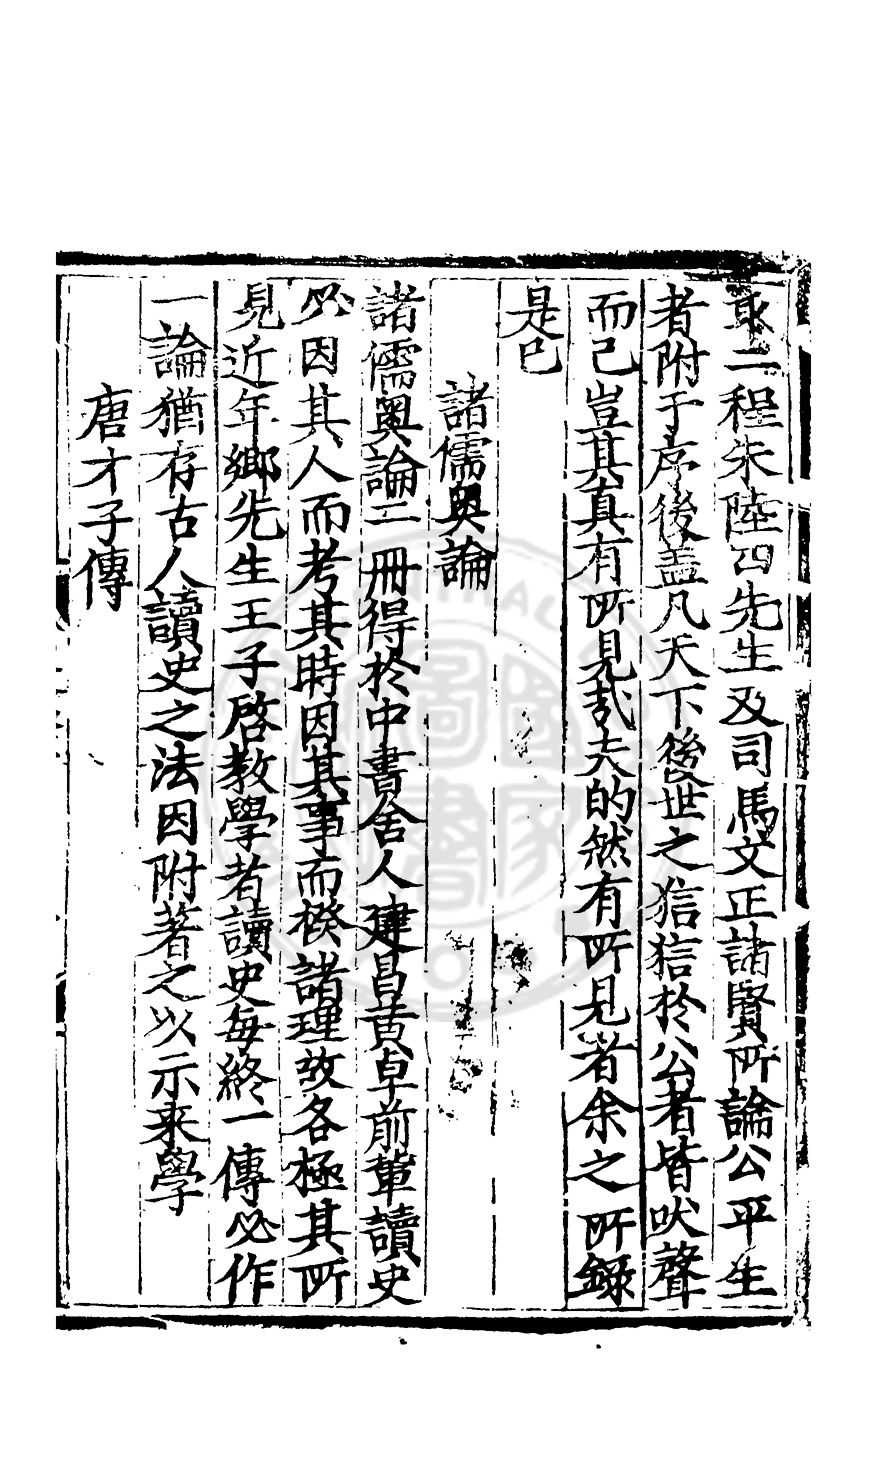 取二程朱陸四先生及司馬文正諸賢所論公平生
者附于序後盖凡天下後世之狺狺於公者皆吠聲
而已豈其真有所見哉夫的然有所見者余之所録
是已
諸儒奥論
諸儒奥論二冊得於中書舍人建昌黄卓前輩讀史
必因其人而考其時因其事而揆諸理故各極其所
見近年鄉先生王子啓教學者讀史每終一傳必作
一論猶存古人讀史之法因附著之以示来學
唐才子傳